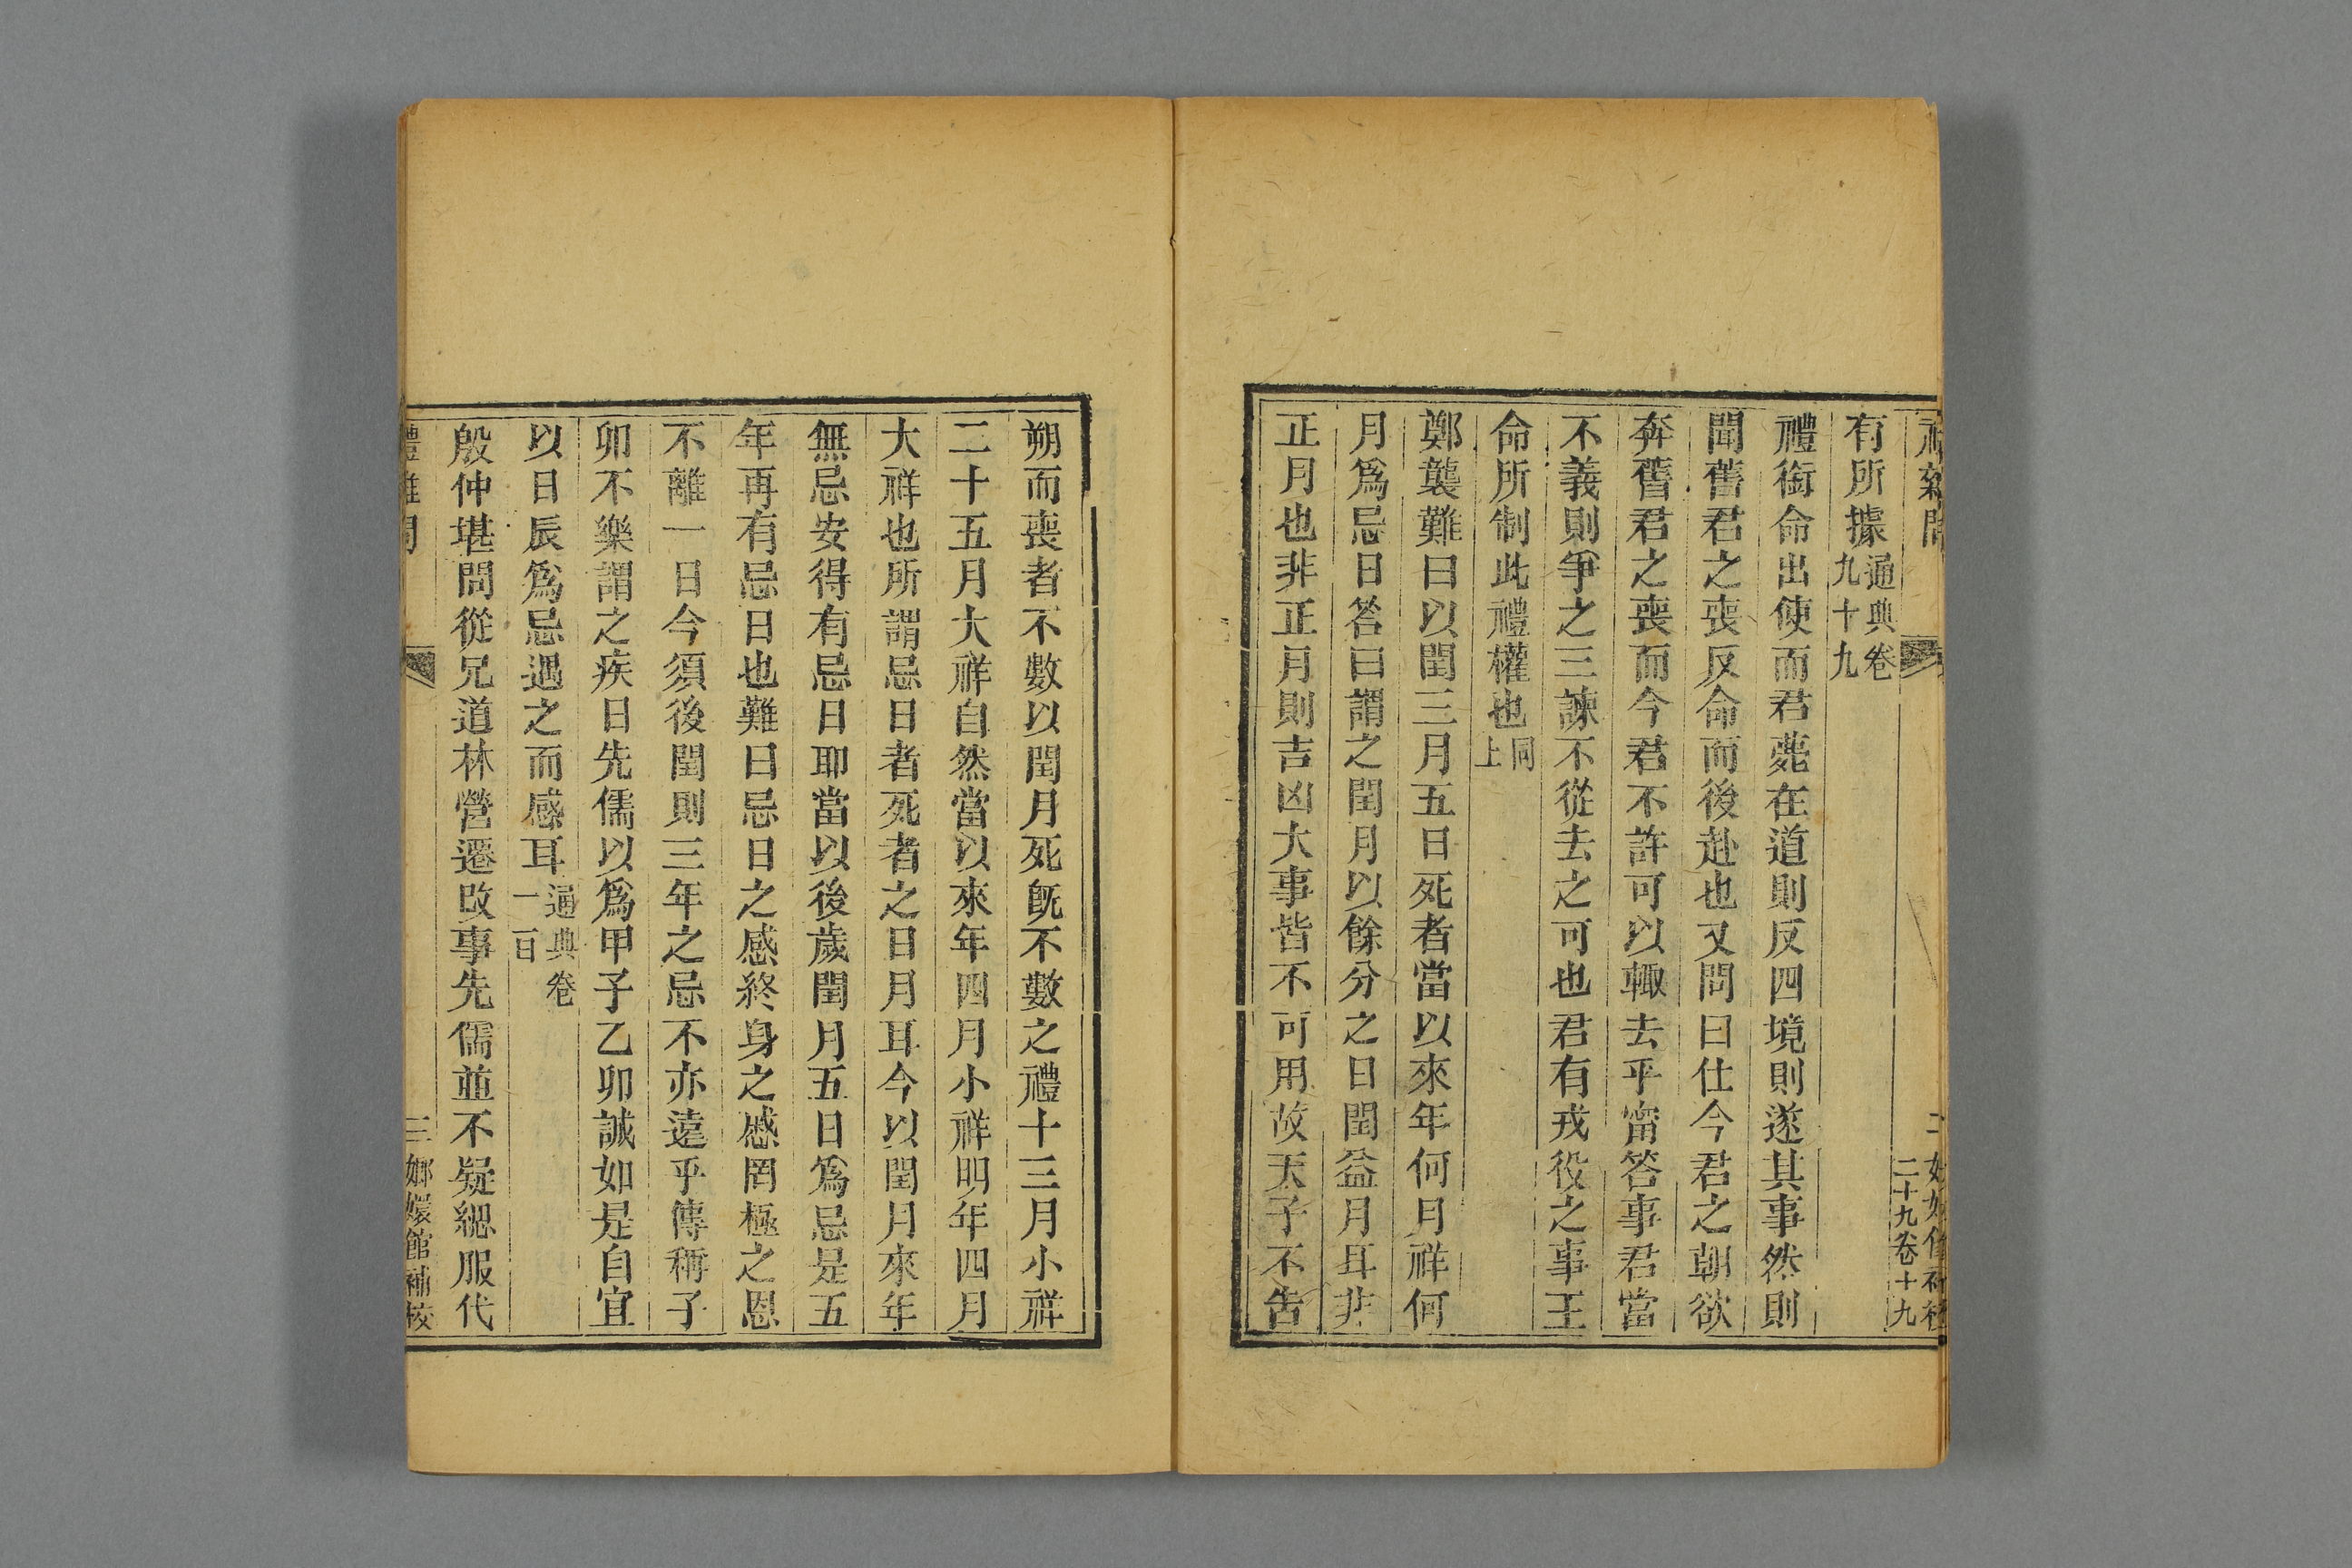 二十九卷十九
有所據通典卷九十九
禮銜命出使而君薨在道則反四境則遂其事然則
聞舊君之喪反命而後赴也又問曰仕今君之朝欲
奔舊君之喪而今君不許可以輙去乎甯答事君當
不義則爭之三諫不從去之可也君有戎役之事王
命所制此禮權也同上
鄭襲難曰以閏三月五日死者當以來年何月祥何
月爲忌日答曰謂之閏月以餘分之日閏益月耳非
正月也非正月則吉凶大事皆不可用故天子不告
朔而喪者不數以閏月死旣不數之禮十三月小祥
二十五月大祥自然當以來年四月小祥明年四月
大祥也所謂忌日者死者之日月耳今以閏月來年
無忌安得有忌日耶當以後歲閏月五日爲忌是五
年再有忌日也難曰忌日之感終身之感罔極之恩
不離一日今須後閏則三年之忌不亦遠乎傳稱子
卯不樂謂之疾日先儒以爲甲子乙卯誠如是自宜
以日辰爲忌遇之而感耳通典卷一百
殷仲堪問從兄道林營遷改事先儒並不疑緦服代
三 嫏嬛館補校